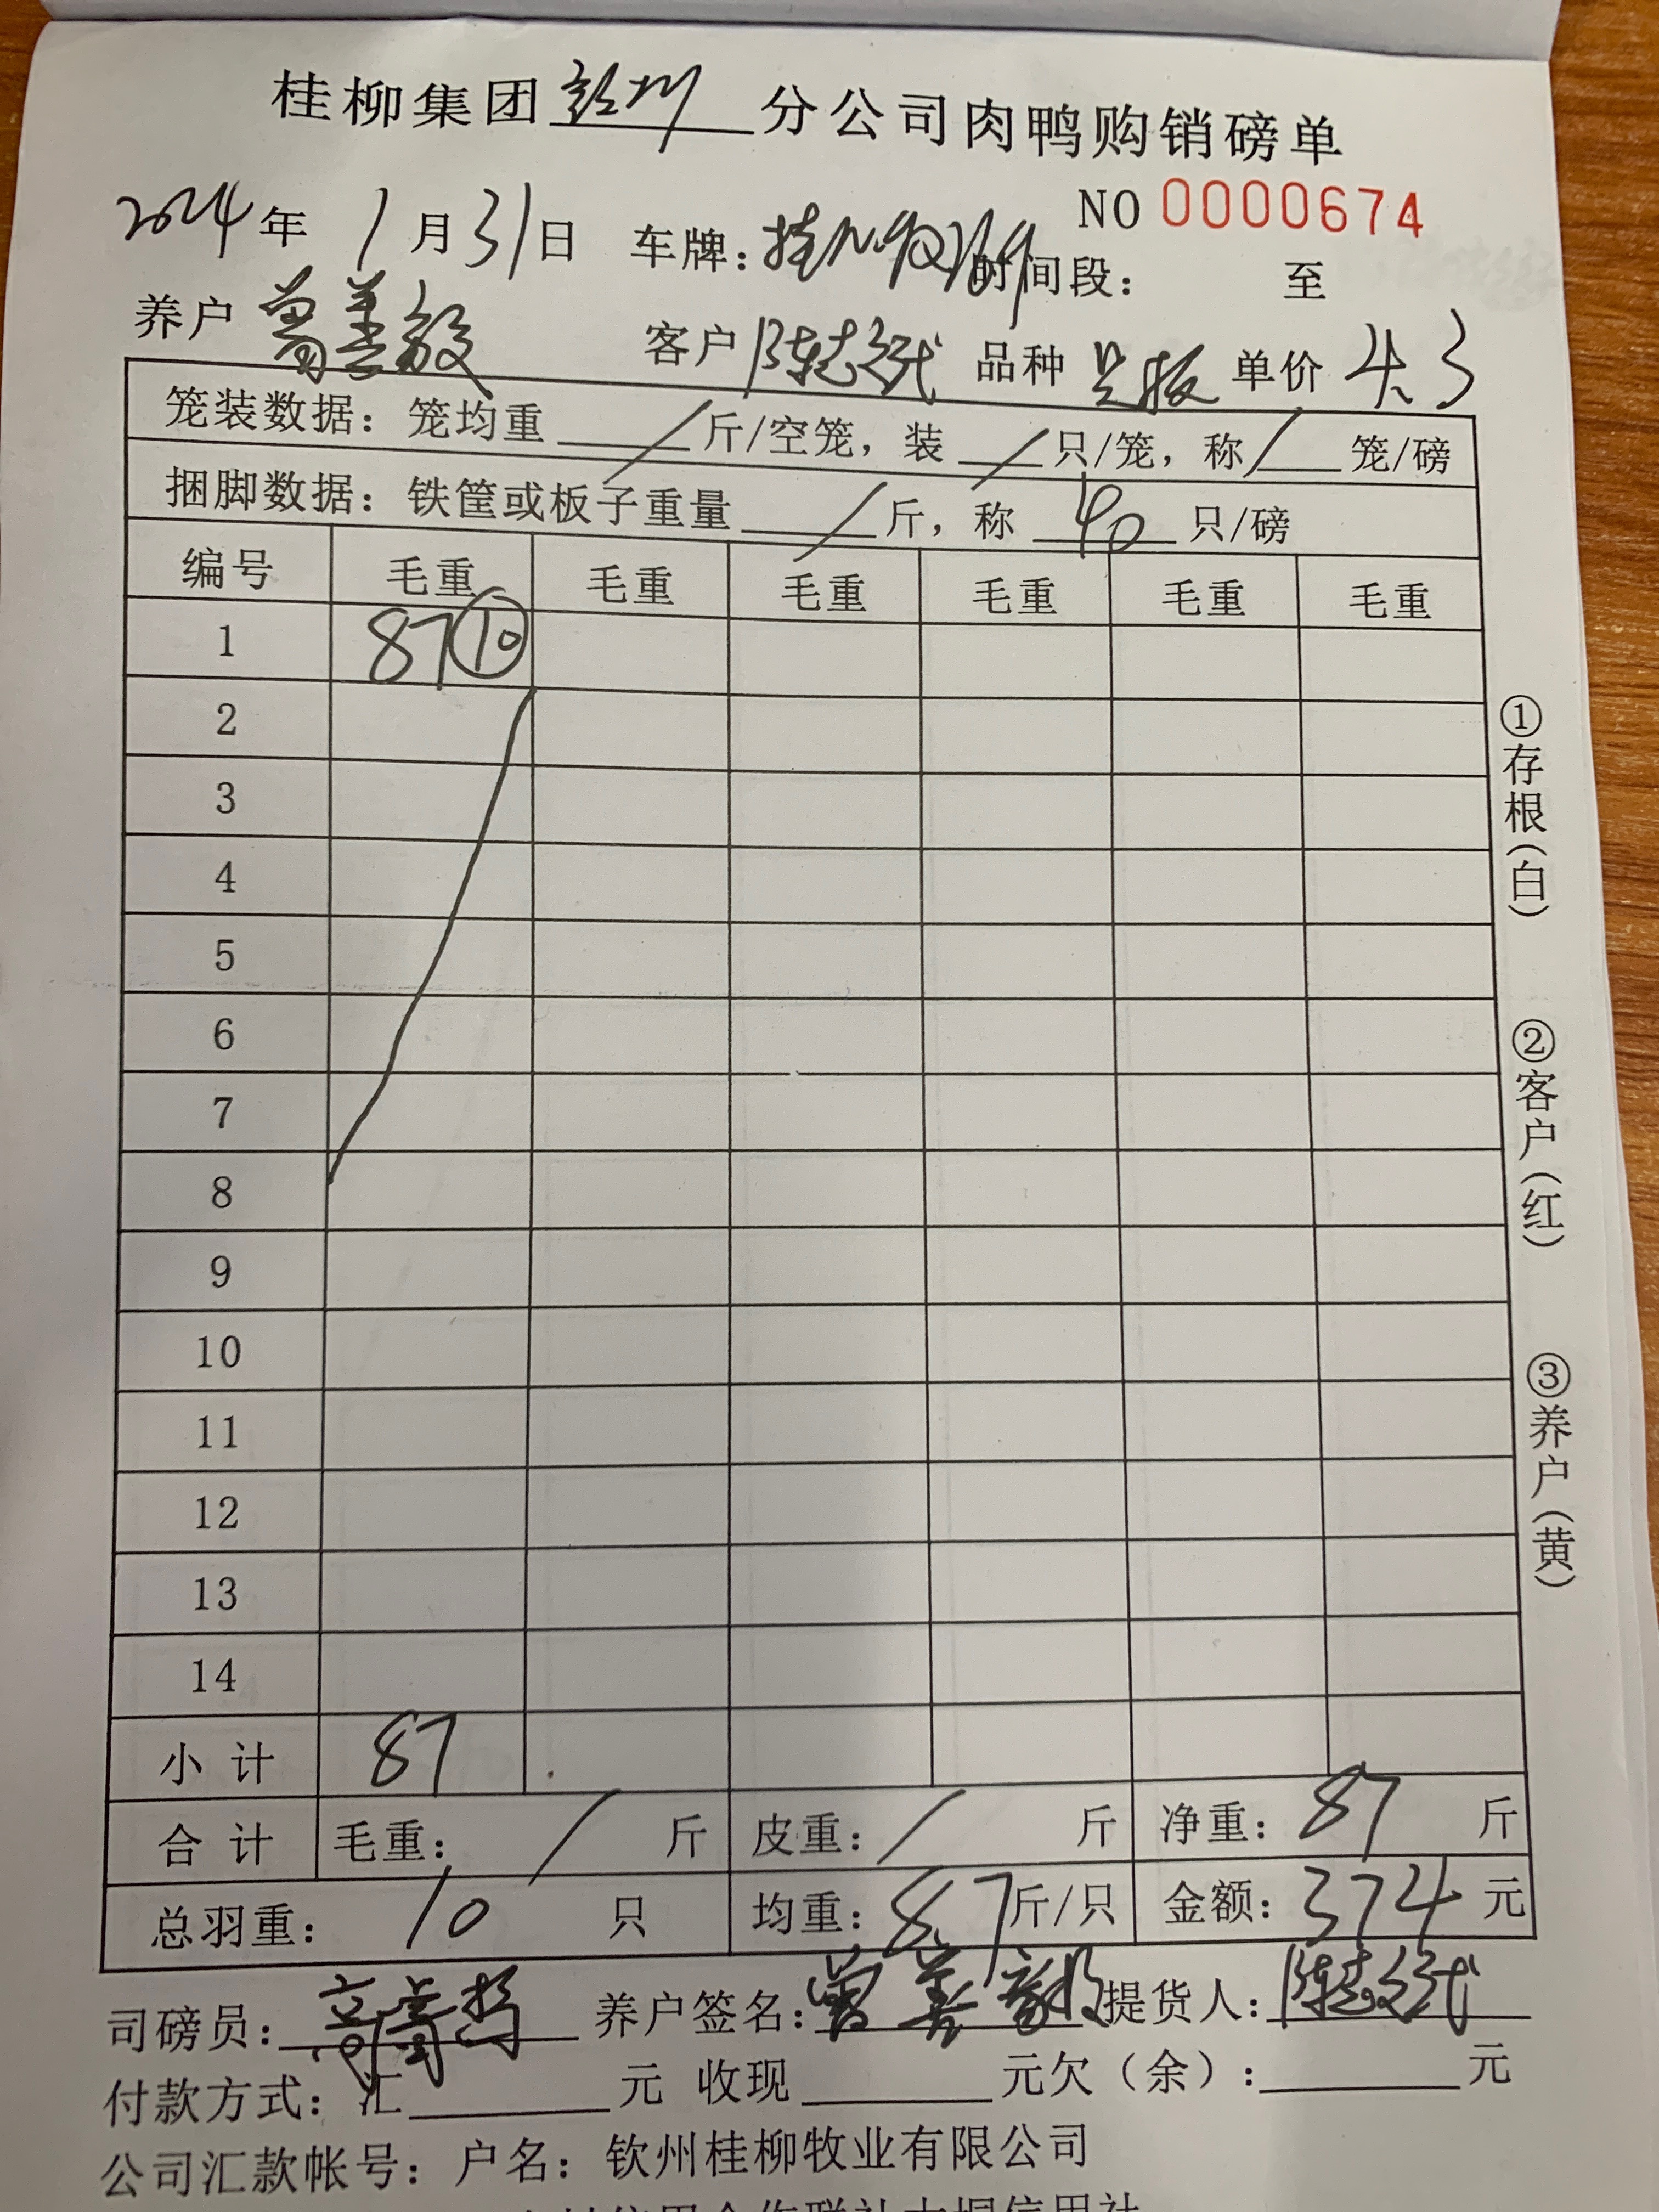 桂柳集团 分公司肉鸭购销磅单
NO 0000674
2024年 1月31日 车牌: 时间段: 至
养户 曾善毅 客户 陈志斌 品种 单价 4.3
笼装数据: 笼均重 / 斤/空笼, 装 / 只/笼, 称 / 笼/磅
捆脚数据: 铁筐或板子重量 / 斤, 称 40 只/磅
编号 毛重 毛重 毛重 毛重 毛重 毛重
1 87 ⑩
2
3
4
5
6
7
8
9
10
11
12
13
14
小计 87
合计 毛重: / 斤 皮重: / 斤 净重: 87 斤
总羽重: 10 只 均重: 8.7 斤/只 金额: 374 元
司磅员: 养户签名: 曾善毅 提货人: 陈志斌
付款方式: 汇 元 收现 元欠(余): 元
公司汇款帐号: 户名: 钦州桂柳牧业有限公司
①存根(白)
②客户(红)
③养户(黄)